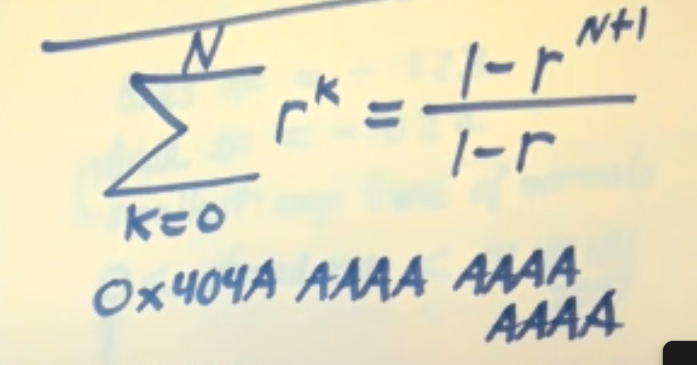 N
∑ r^k = (1-r^{N+1})/(1-r)
k=0
0x404A AAAA AAAA
AAAA